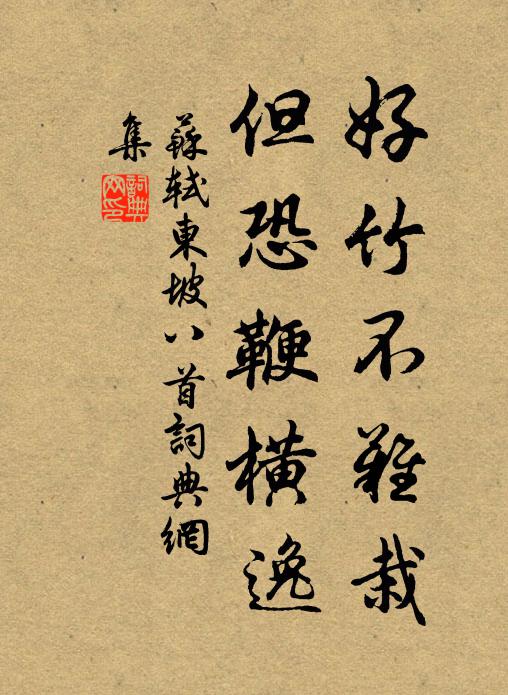 好竹不難栽
但恐鞭橫逸
蘇軾東坡八首詞典網
集
詞典
网印